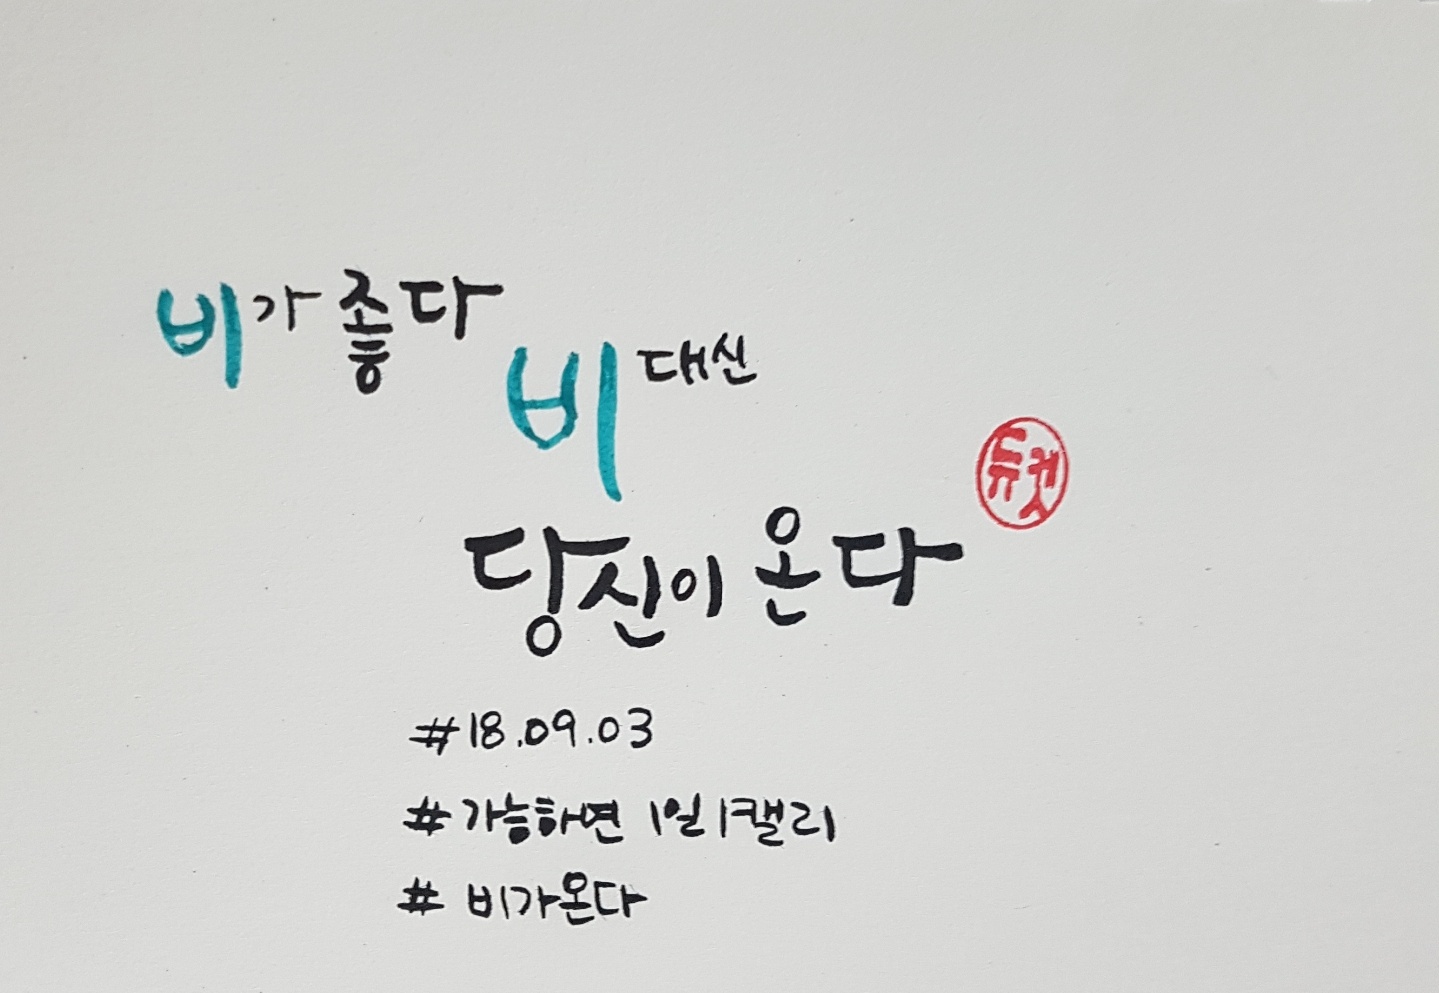 비가 좋다
비 대신
당신이 온다
듀켓
#18.09.03
#가능하면 1일 1캘리
# 비가온다